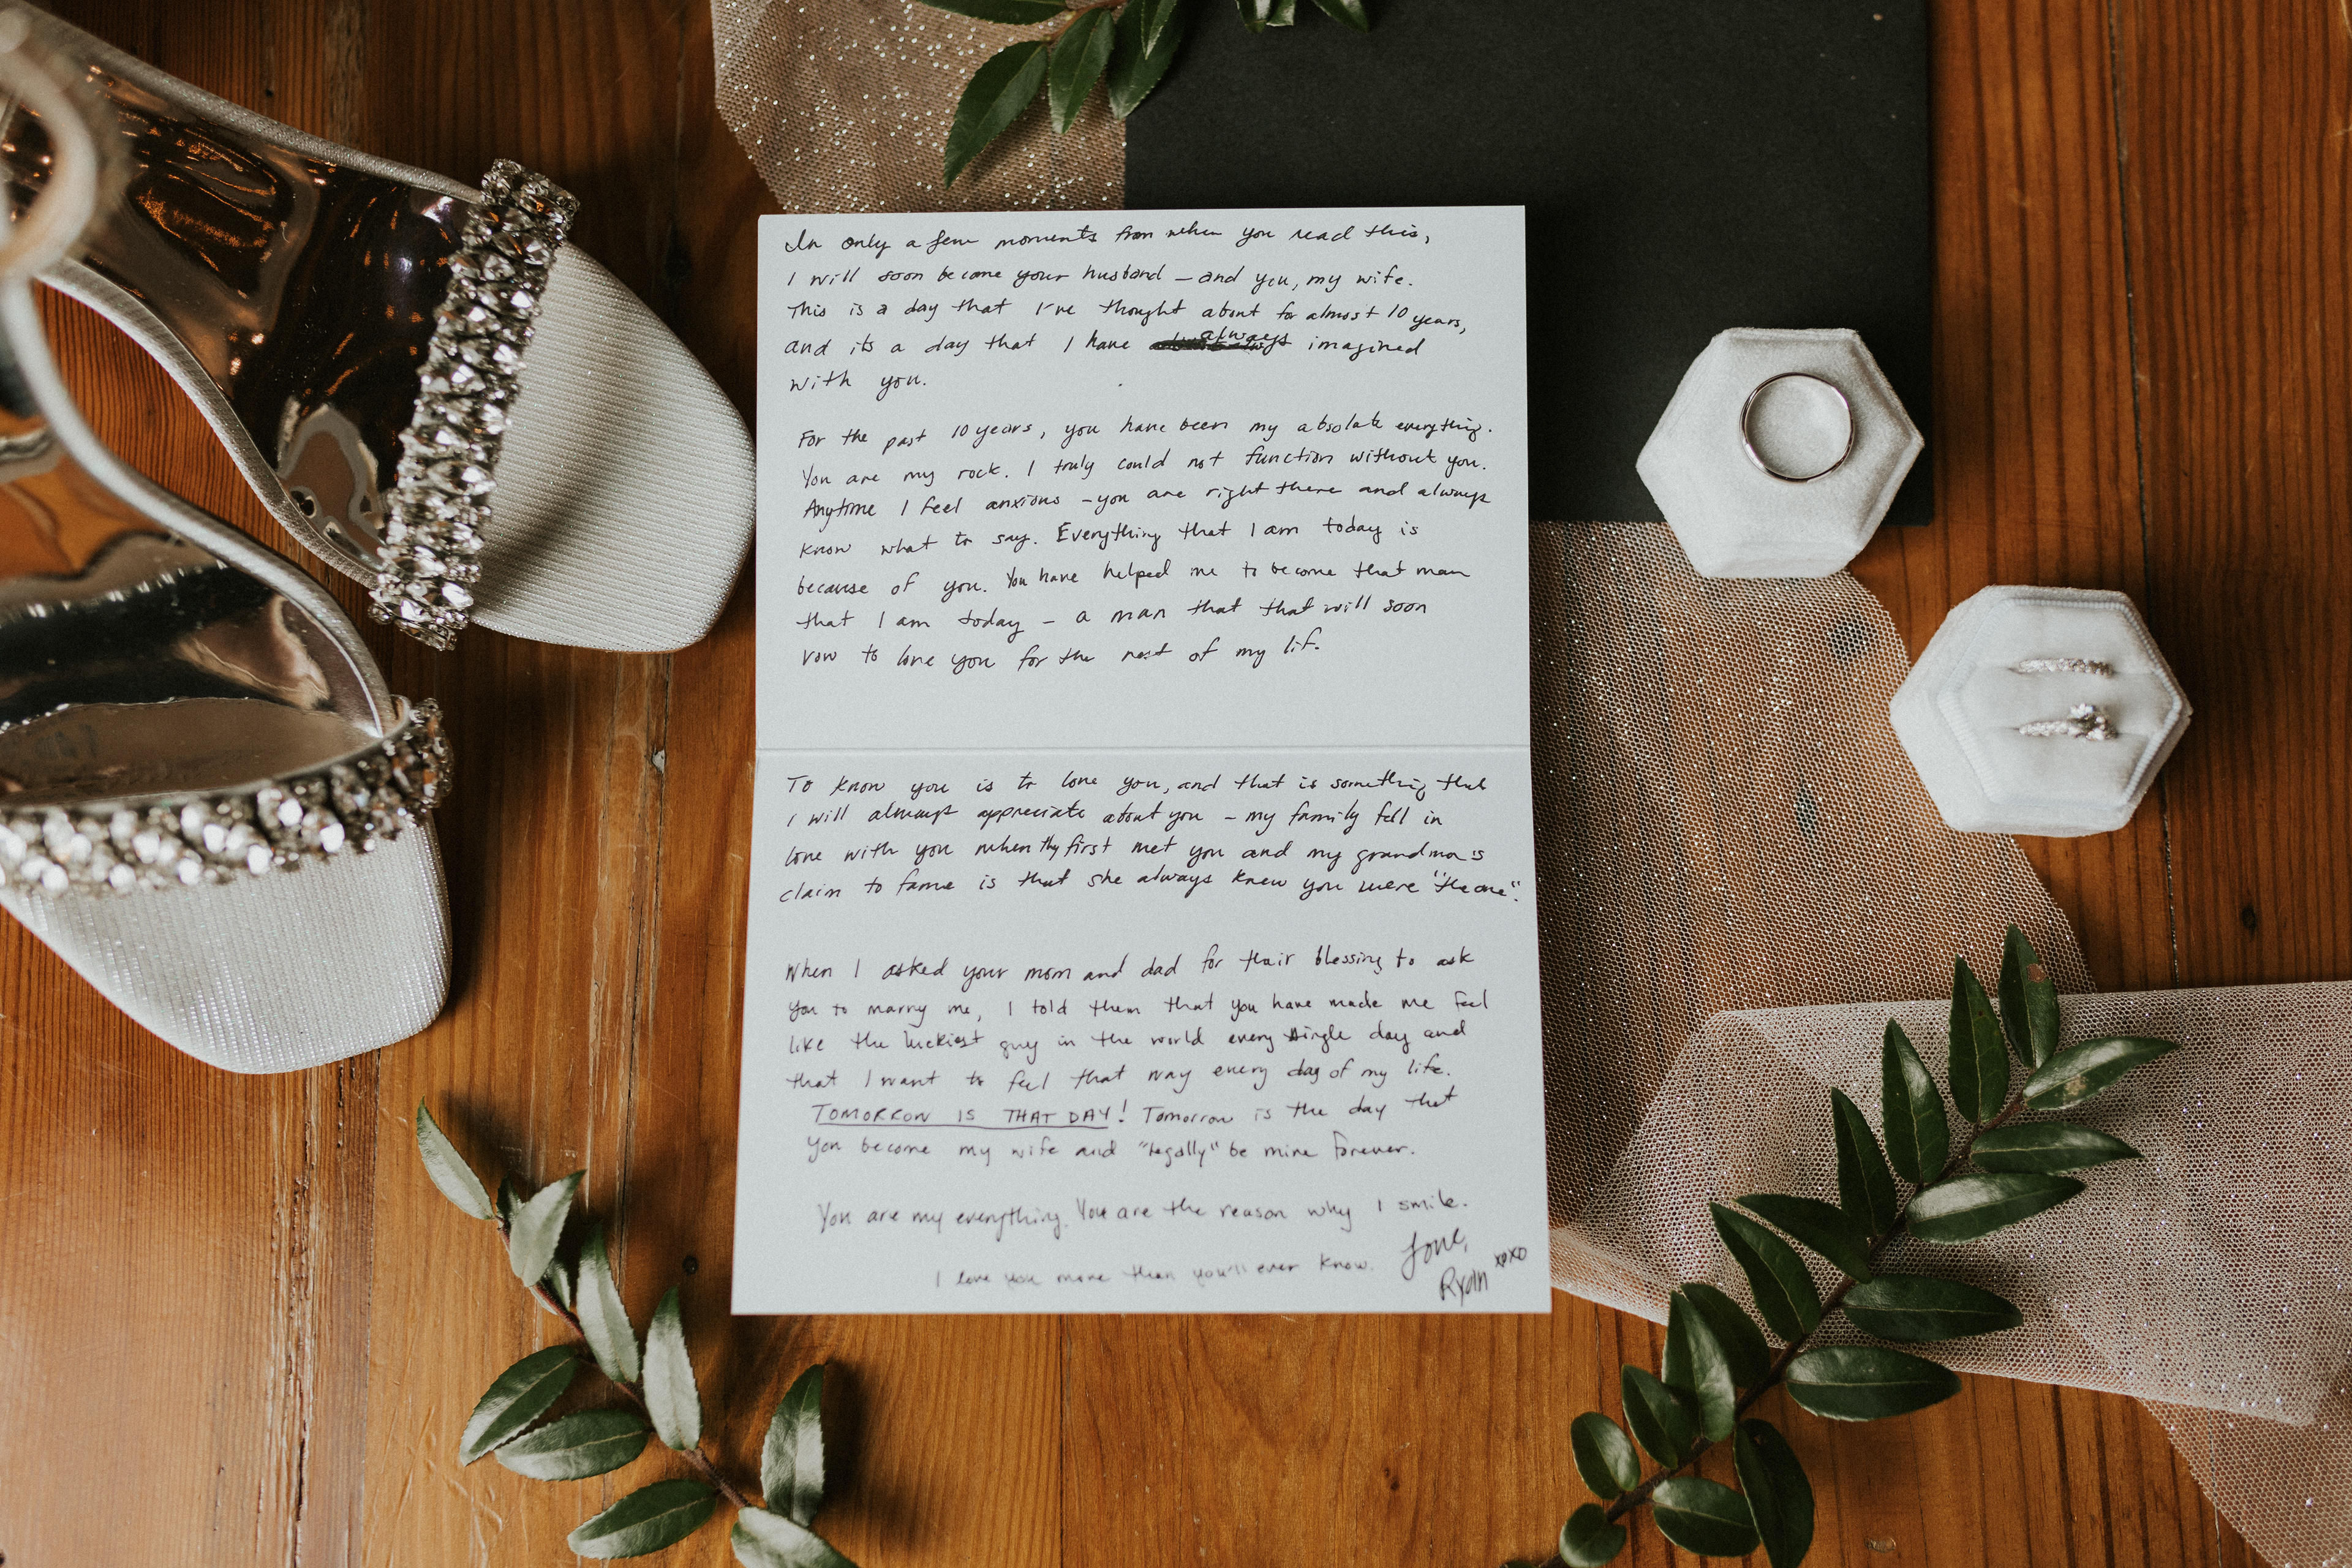 In only a few moments from when you read this,
I will soon become your husband – and you, my wife.
This is a day that I've thought about for almost 10 years,
and its a day that I have always imagined
with you.
For the past 10 years, you have been my absolute everything.
You are my rock. I truly could not function without you.
Anytime I feel anxious – you are right there and always
know what to say. Everything that I am today is
because of you. You have helped me to become that man
that I am today – a man that that will soon
vow to love you for the rest of my life.
To know you is to love you, and that is something that
I will always appreciate about you – my family fell in
love with you when they first met you and my grandma's
claim to fame is that she always knew you were "the one".
When I asked your mom and dad for their blessing to ask
you to marry me, I told them that you have made me feel
like the luckiest guy in the world every single day and
that I want to feel that way every day of my life.
TOMORROW IS THAT DAY! Tomorrow is the day that
you become my wife and "legally" be mine forever.
You are my everything. You are the reason why I smile.
I love you more than you'll ever know.
Love,
Ryan xoxo